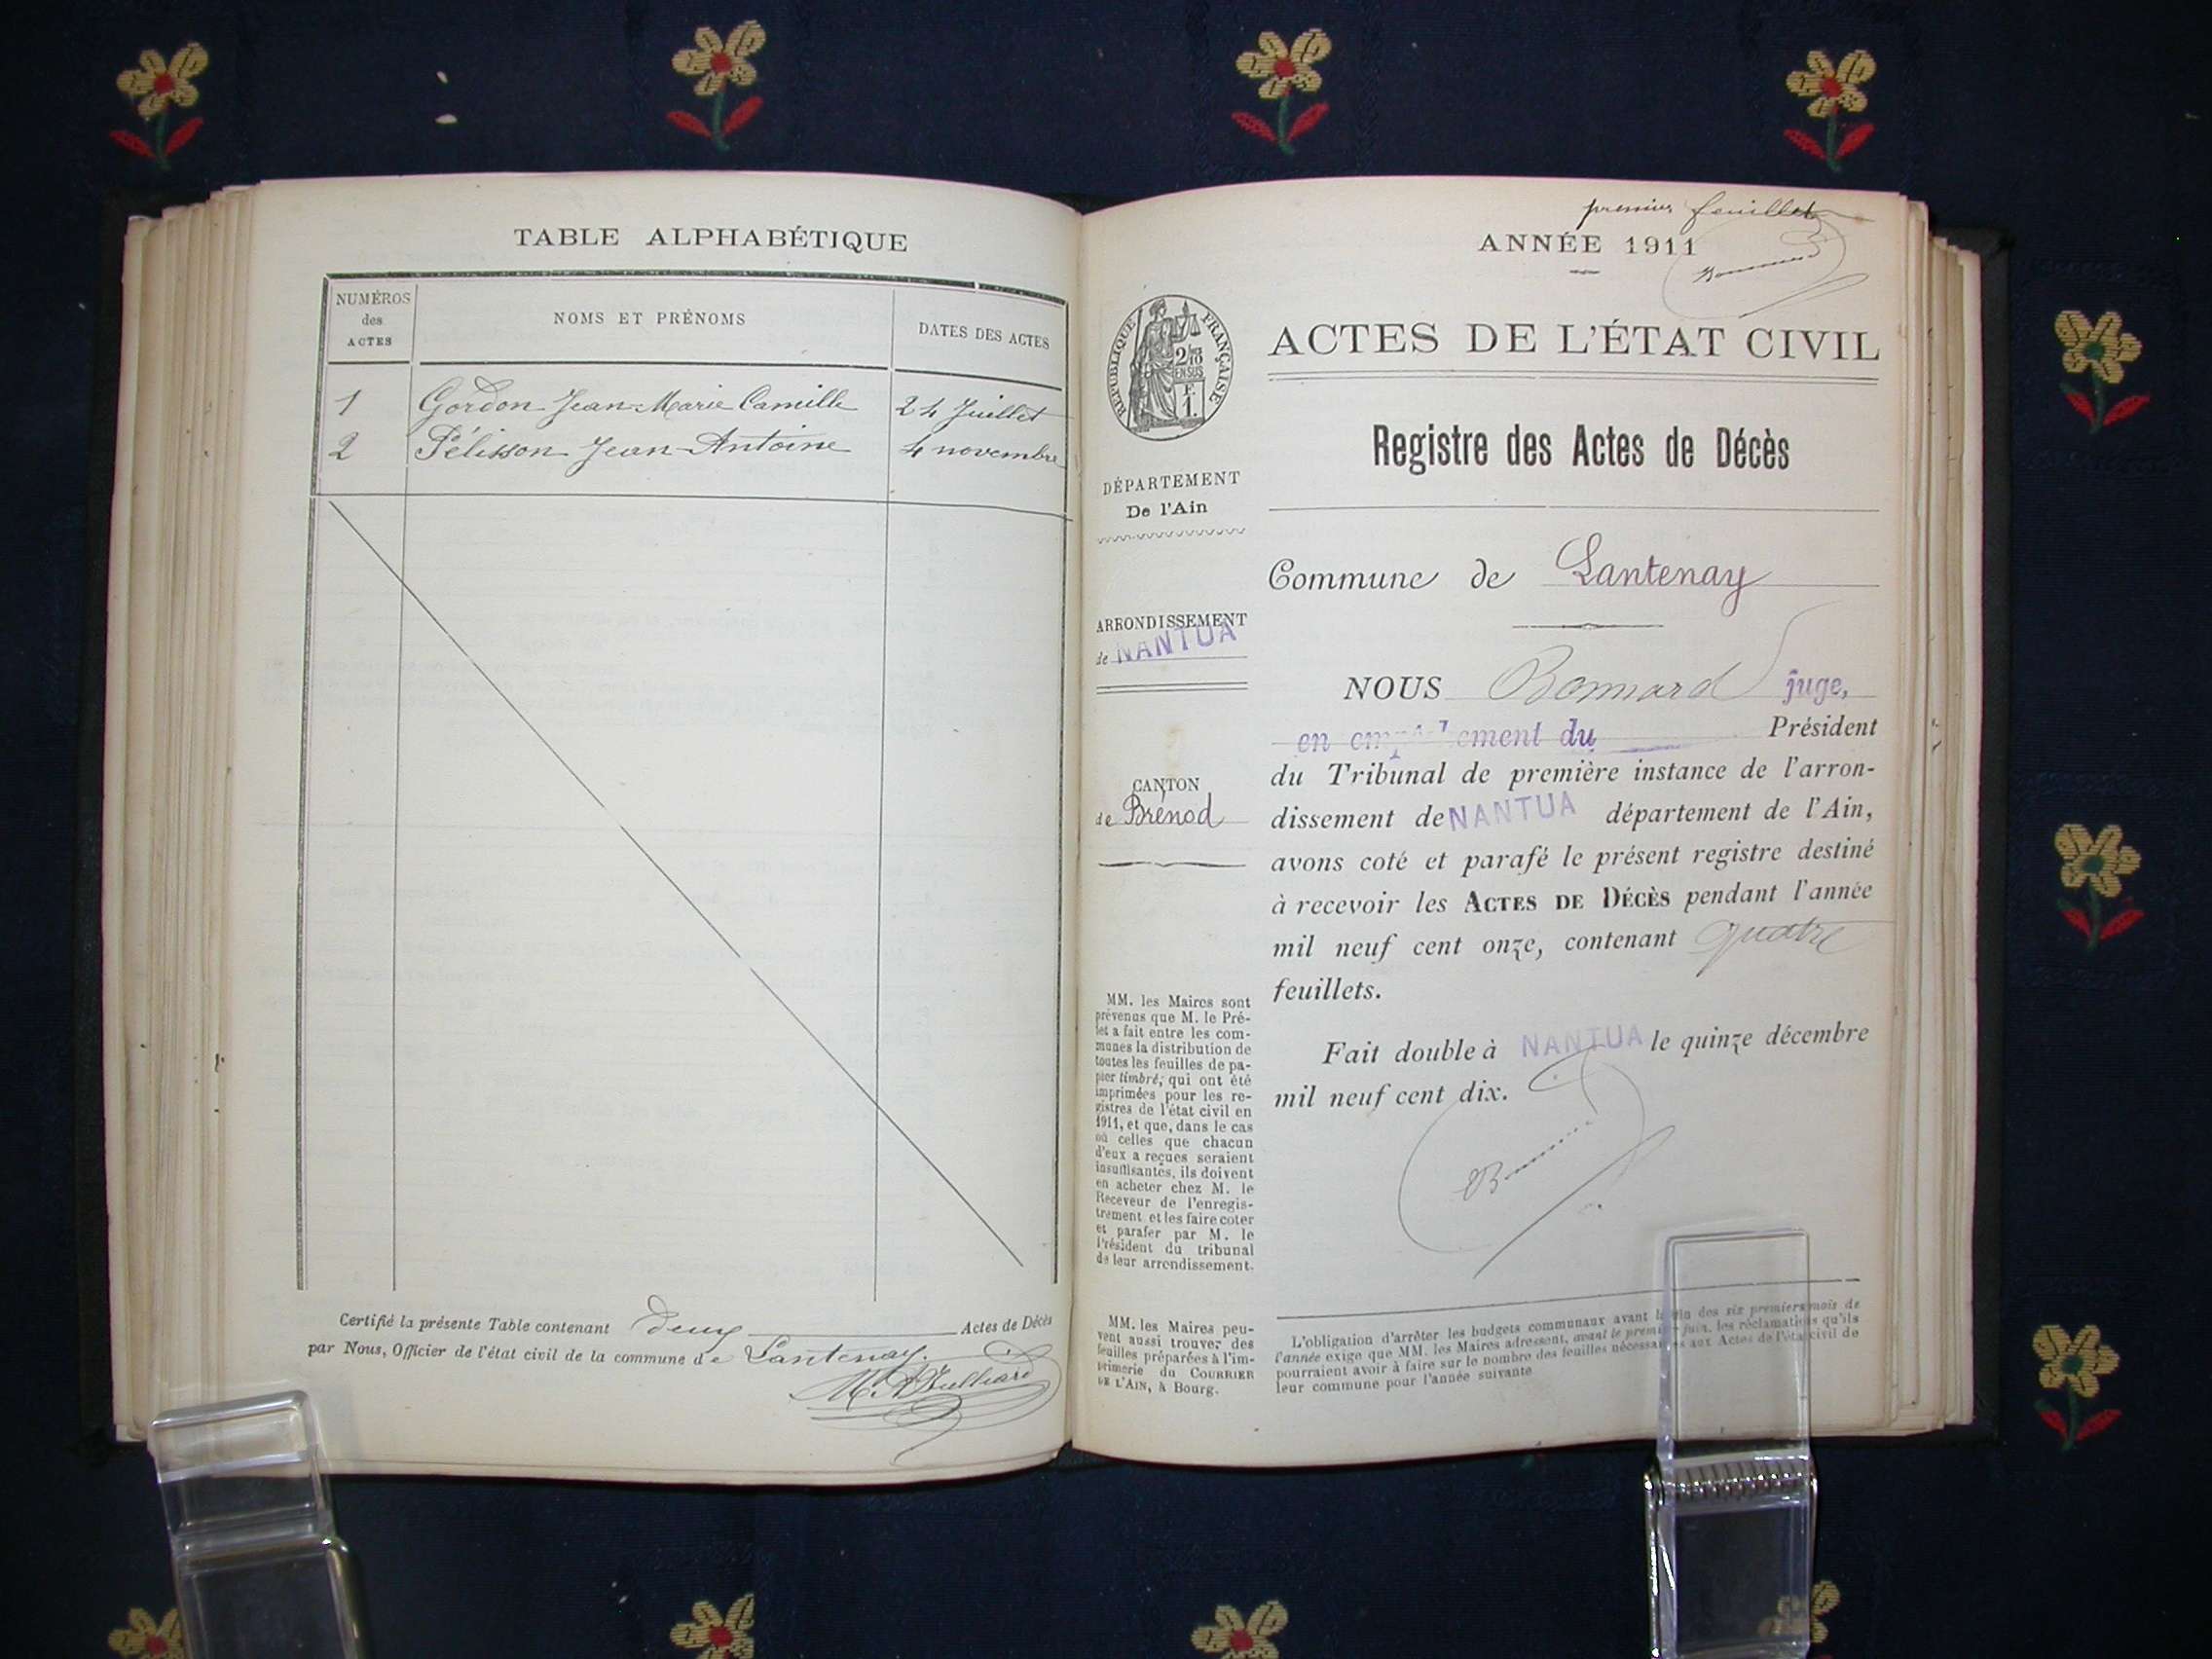 TABLE ALPHABÉTIQUE
NUMÉROS
des
ACTES
NOMS ET PRÉNOMS
DATES DES ACTES
1 Gordon Jean-Marie Camille 24 Juillet
2 Pélisson Jean-Antoine 4 novembre
Certifié la présente Table contenant deux Actes de Décès
par Nous, Officier de l'état civil de la commune de Lantenay.
premier feuillet
ANNÉE 1911
RÉPUBLIQUE FRANÇAISE
2/10
EN SUS
F.
1.
ACTES DE L'ÉTAT CIVIL
Registre des Actes de Décès
DÉPARTEMENT
De l'Ain
Commune de Lantenay
ARRONDISSEMENT
de NANTUA
CANTON
de Brénod
NOUS Bonnard juge,
en empêchement du Président
du Tribunal de première instance de l'arron-
dissement de NANTUA département de l'Ain,
avons coté et parafé le présent registre destiné
à recevoir les ACTES DE DÉCÈS pendant l'année
mil neuf cent onze, contenant quatre
feuillets.
Fait double à NANTUA le quinze décembre
mil neuf cent dix.
MM. les Maires sont
prévenus que M. le Pré-
fet a fait entre les com-
munes la distribution de
toutes les feuilles de pa-
pier timbré, qui ont été
imprimées pour les re-
gistres de l'état civil en
1911, et que, dans le cas
où celles que chacun
d'eux a reçues seraient
insuffisantes, ils doivent
en acheter chez M. le
Receveur de l'enregis-
trement et les faire coter
et parafer par M. le
Président du tribunal
de leur arrondissement.
MM. les Maires peu-
vent aussi trouver des
feuilles préparées à l'im-
primerie du COURRIER
DE L'AIN, à Bourg.
L'obligation d'arrêter les budgets communaux avant la fin des six premiers mois de
l'année exige que MM. les Maires adressent, avant le premier juin, les réclamations qu'ils
pourraient avoir à faire sur le nombre des feuilles nécessaires aux Actes de l'état civil de
leur commune pour l'année suivante